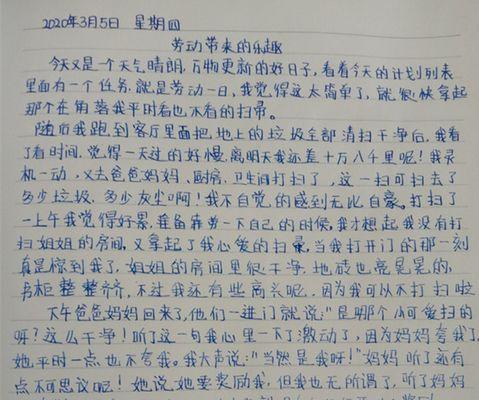 2020年3月5日 星期四
劳动带来的乐趣
今天又是一个天气晴朗,万物更新的好日子,看着今天的计划列表
里面有一个任务,就是劳动一日,我觉得这太简单了,就很快拿起
那个在角落我平时看也不看的扫帚。
随后我跑到客厅里面把地上的垃圾全部清扫干净后,我看
了看时间,觉得一天过的好慢,离明天我还差十万八千里呢!我灵
机一动,又去爸爸妈妈、厨房、卫生间打扫了,这一扫可扫去了
多少垃圾,多少灰尘啊!我不自觉的感到无比自豪。打扫了
一上午我觉得好累,准备犒劳一下自己的时候,我才想起我没有打
扫姐姐的房间,又拿起了我心爱的扫帚,当我打开门的那一刻
真是惊到我了,姐姐的房间里很干净,地砖也亮晃晃的,
书柜整整齐,不过我还有些高兴呢,因为我可以不打扫啦
下午爸爸妈妈回来了,他们一进门就说:"是哪个小可爱扫的
呀?这么干净!听了这一句我心里一下子激动了,因为妈妈夸我了,
她平时一点也不夸我。我大声说:"当然是我呀!"妈妈听了还有
点不可思议呢!她说她要奖励我,但我也无所谓了,听了妈妈